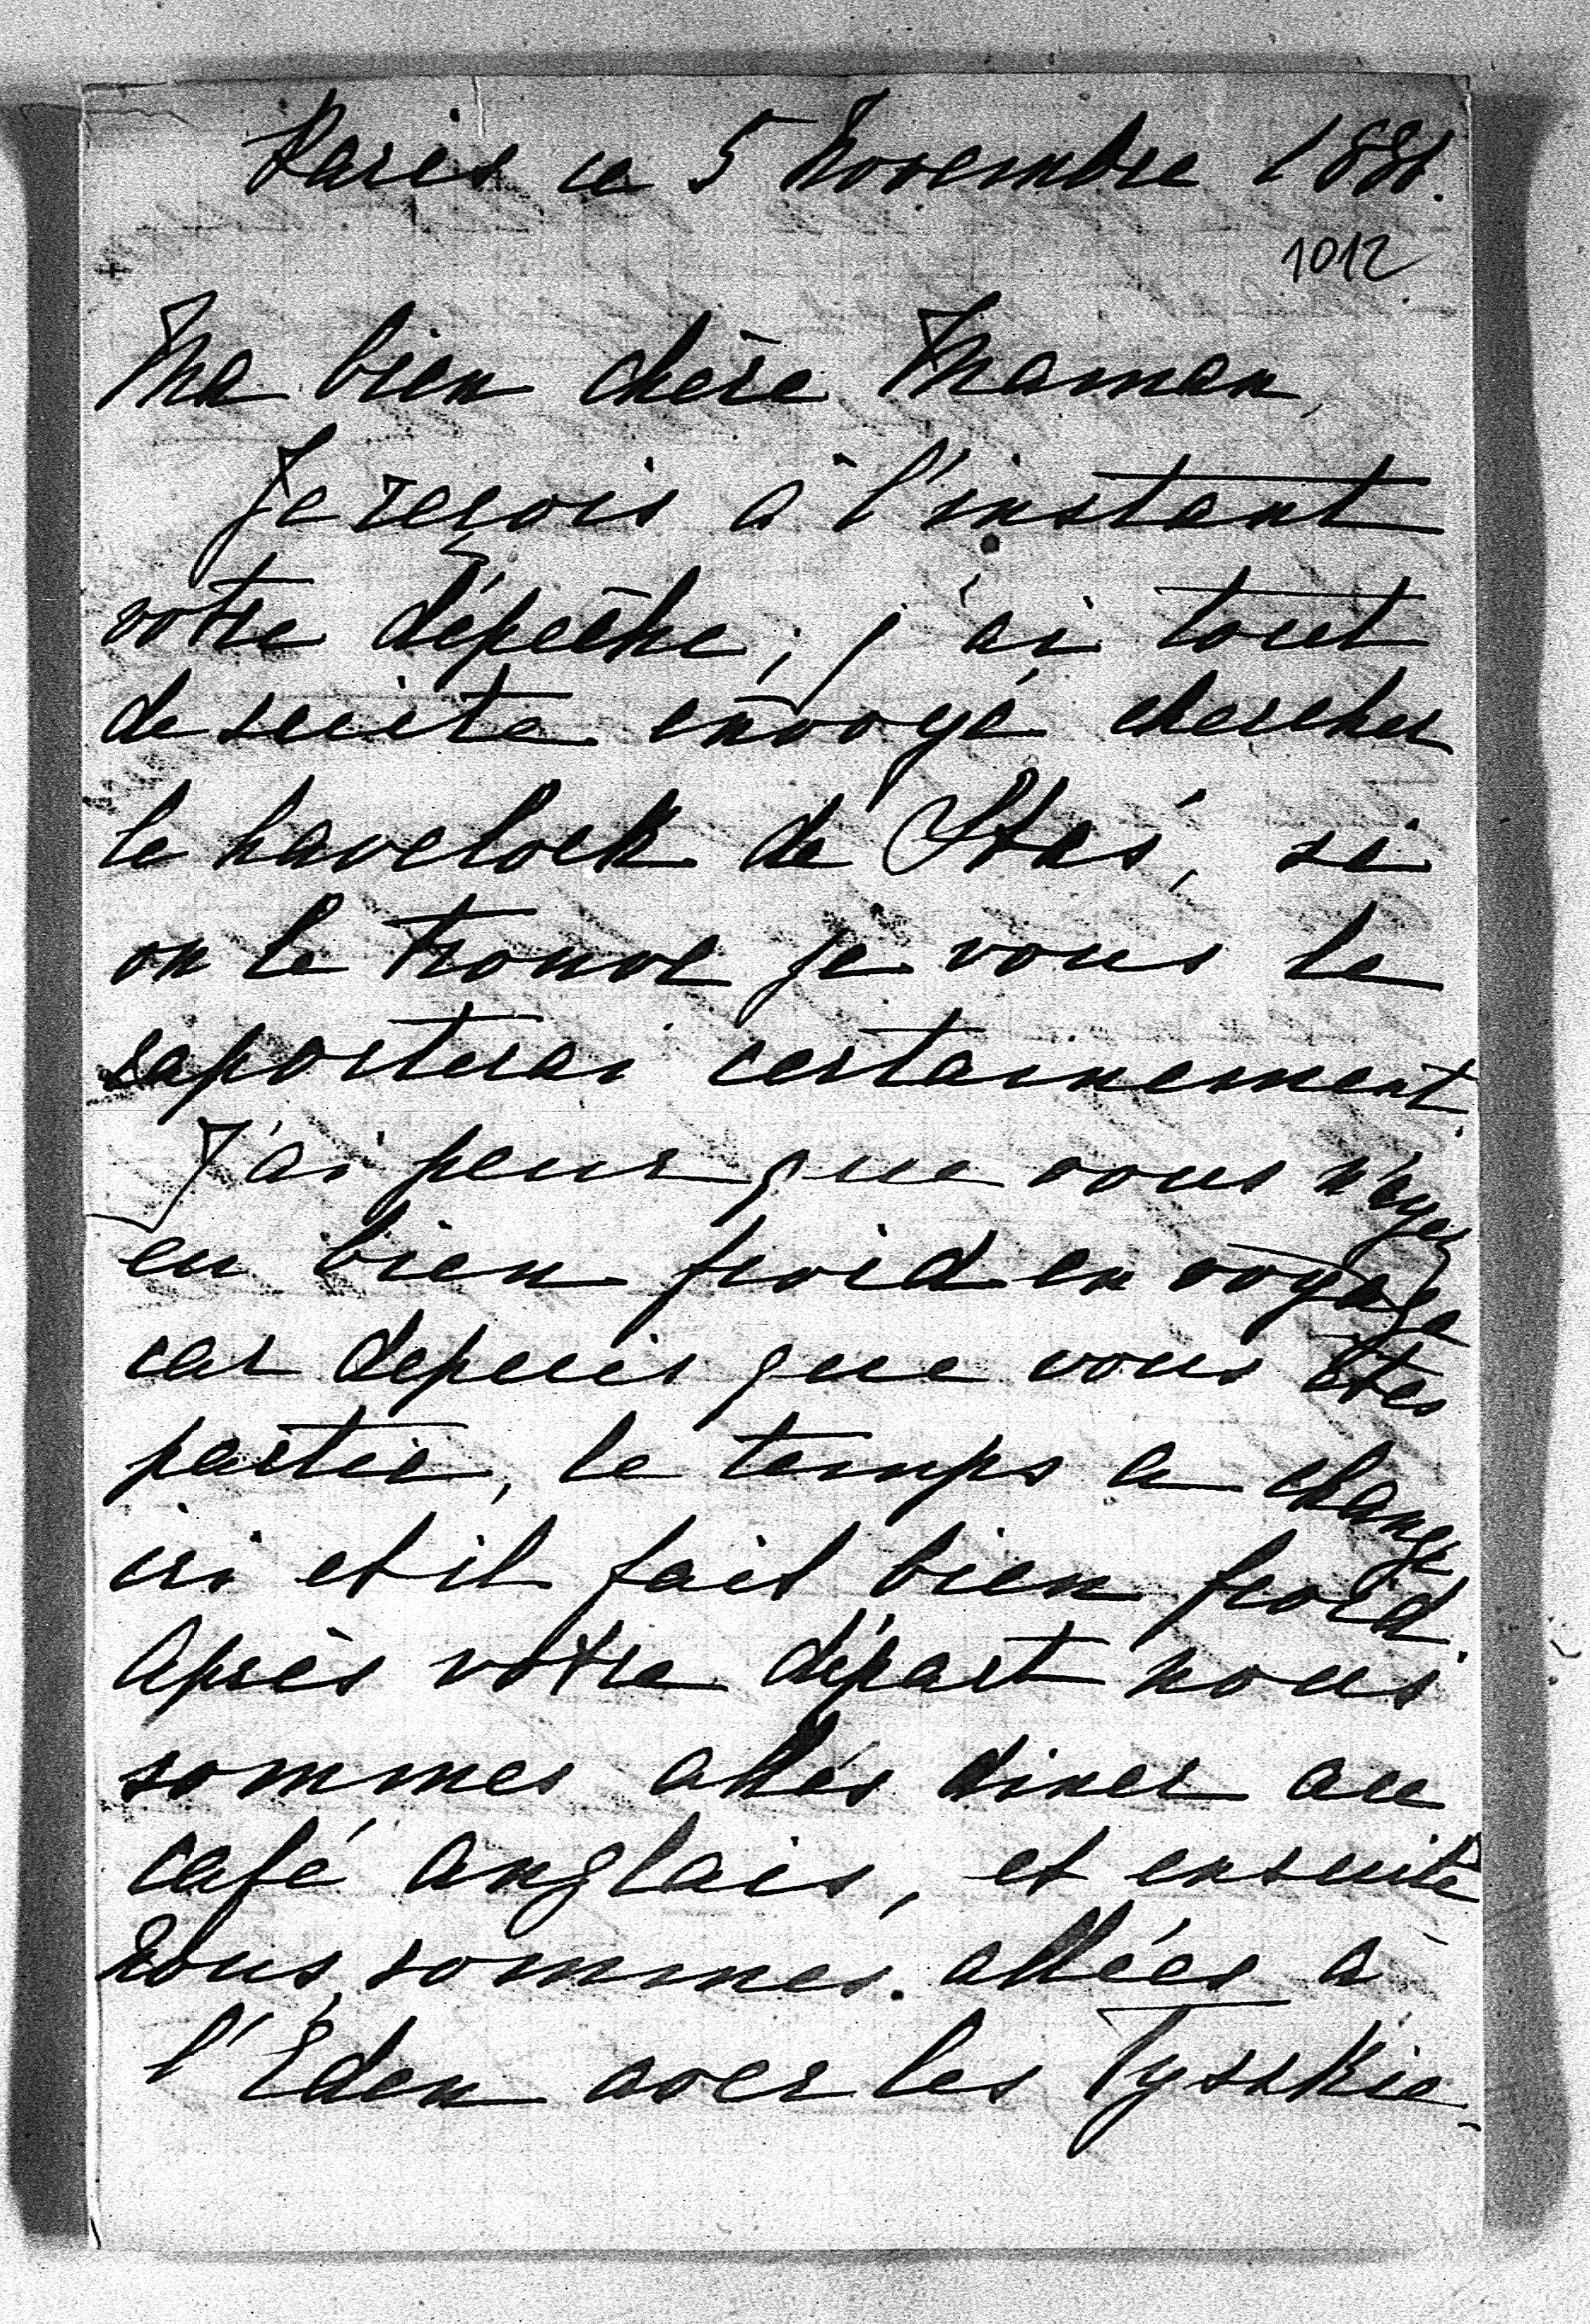 Paris ce 5 Novembre 1881.
1012
Ma bien chère Maman,
Je reçois à l'instant
votre dépêche; j'ai tout
de suite envoyé chercher
le havelock de Stas, si
on le trouve je vous le
raporterai certainement.
J'ai peur que vous n'ayez
eu bien froid en voyage
car depuis que vous êtes
partie, le temps a changé
ici et il fait bien froid.
Après votre départ nous
sommes allés diner au
café anglais, et ensuite
nous sommes allées à
l'Eden avec les Tyszkie-